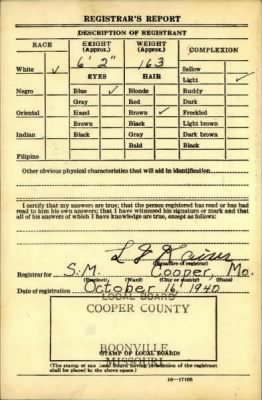 REGISTRAR'S REPORT
DESCRIPTION OF REGISTRANT
RACE HEIGHT (Approx.) WEIGHT (Approx.) COMPLEXION
6' 2" 163
White ✓ Sallow
EYES HAIR Light ✓
Negro Blue ✓ Blonde Ruddy
Gray Red Dark
Oriental Hazel Brown ✓ Freckled
Brown Black Light brown
Indian Black Gray Dark brown
Bald Black
Filipino
Other obvious physical characteristics that will aid in identification
I certify that my answers are true; that the person registered has read or has had
read to him his own answers; that I have witnessed his signature or mark and that
all of his answers of which I have knowledge are true, except as follows:
L J
(Signature of registrar)
Registrar for S.M. Cooper, Mo.
(Precinct) (Ward) (City or county) (State)
Date of registration October 16, 1940
LOCAL BOARD
COOPER COUNTY
BOONVILLE
(STAMP OF LOCAL BOARD)
MISSOURI
(The stamp of the Local Board having jurisdiction of the registrant
shall be placed in the above space.)
16—17105